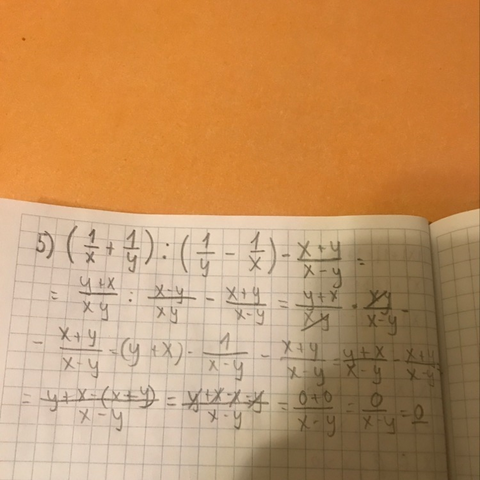 5) (1/x + 1/y) : (1/y - 1/x) - (x+y)/(x-y) =
= (y+x)/(xy) : (x-y)/(xy) - (x+y)/(x-y) = (y+x)/(xy) · (xy)/(x-y) -
- (x+y)/(x-y) = (y+x) · 1/(x-y) - (x+y)/(x-y) = (y+x)/(x-y) - (x+y)/(x-y)
= (y+x-(x+y))/(x-y) = (y+x-x-y)/(x-y) = (0+0)/(x-y) = 0/(x-y) = 0